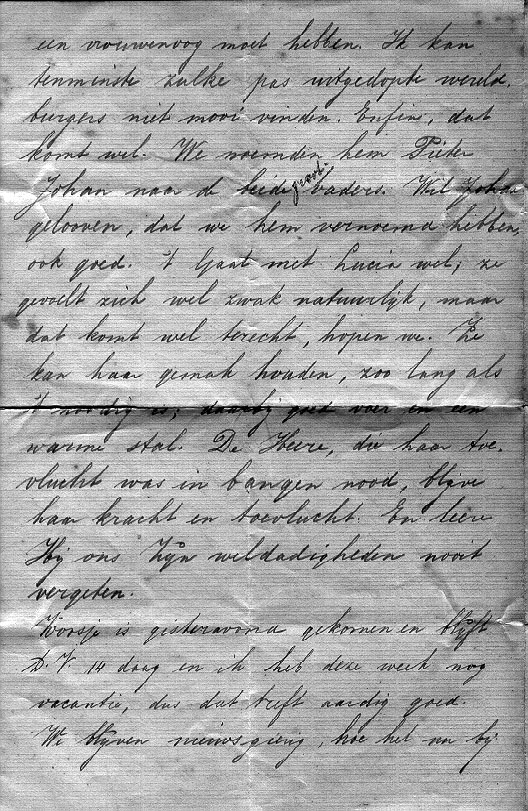 een vrouwenoog moet hebben. Ik kan
tenminste zulke pas uitgedopte wereld-
burgers niet mooi vinden. Enfin, dat
komt wel. We noemden hem Pieter
Johan naar de beide grootvaders. Wil Johan
gelooven, dat we hem vernoemd hebben,
ook goed. 't Gaat met Lucia wel; ze
gevoelt zich wel zwak natuurlijk, maar
dat komt wel terecht, hopen we. Ze
kan haar gemak houden, zoo lang als
't noodig is; daarbij goed voer en een
warme stal. De Heere, die haar toe-
vlucht was in bangen nood, blijve
haar kracht en toevlucht. En leere
Hij ons Zijn weldadigheden nooit
vergeten.
is gisteravond gekomen en blijft
D.V. 14 daag en ik heb deze week nog
vacantie, dus dat treft aardig goed.
We blijven nieuwsgierig, hoe het nu bij